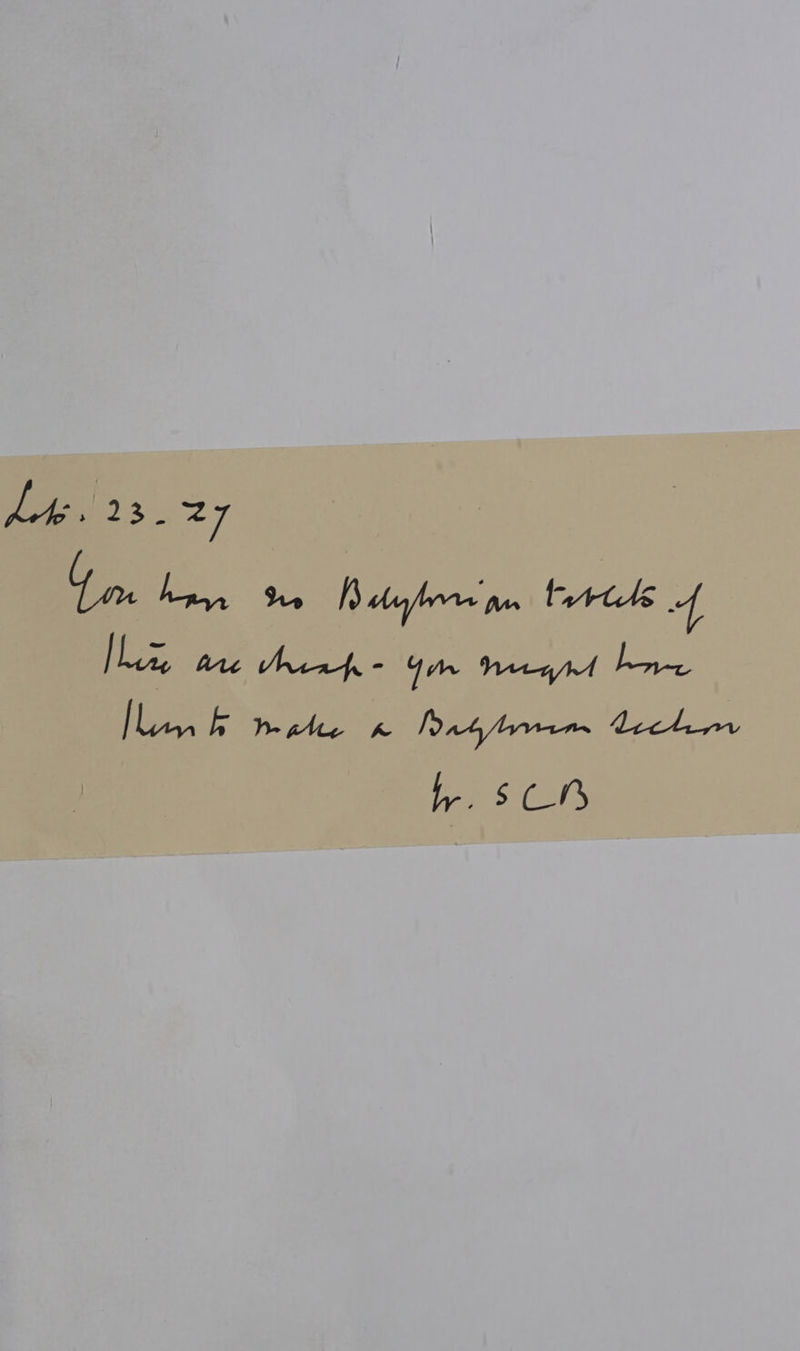 Lots. 23-27
You have no Babylonian tablets if
these are cheap - you might have
them to make a Babylonian Section
W. SCB